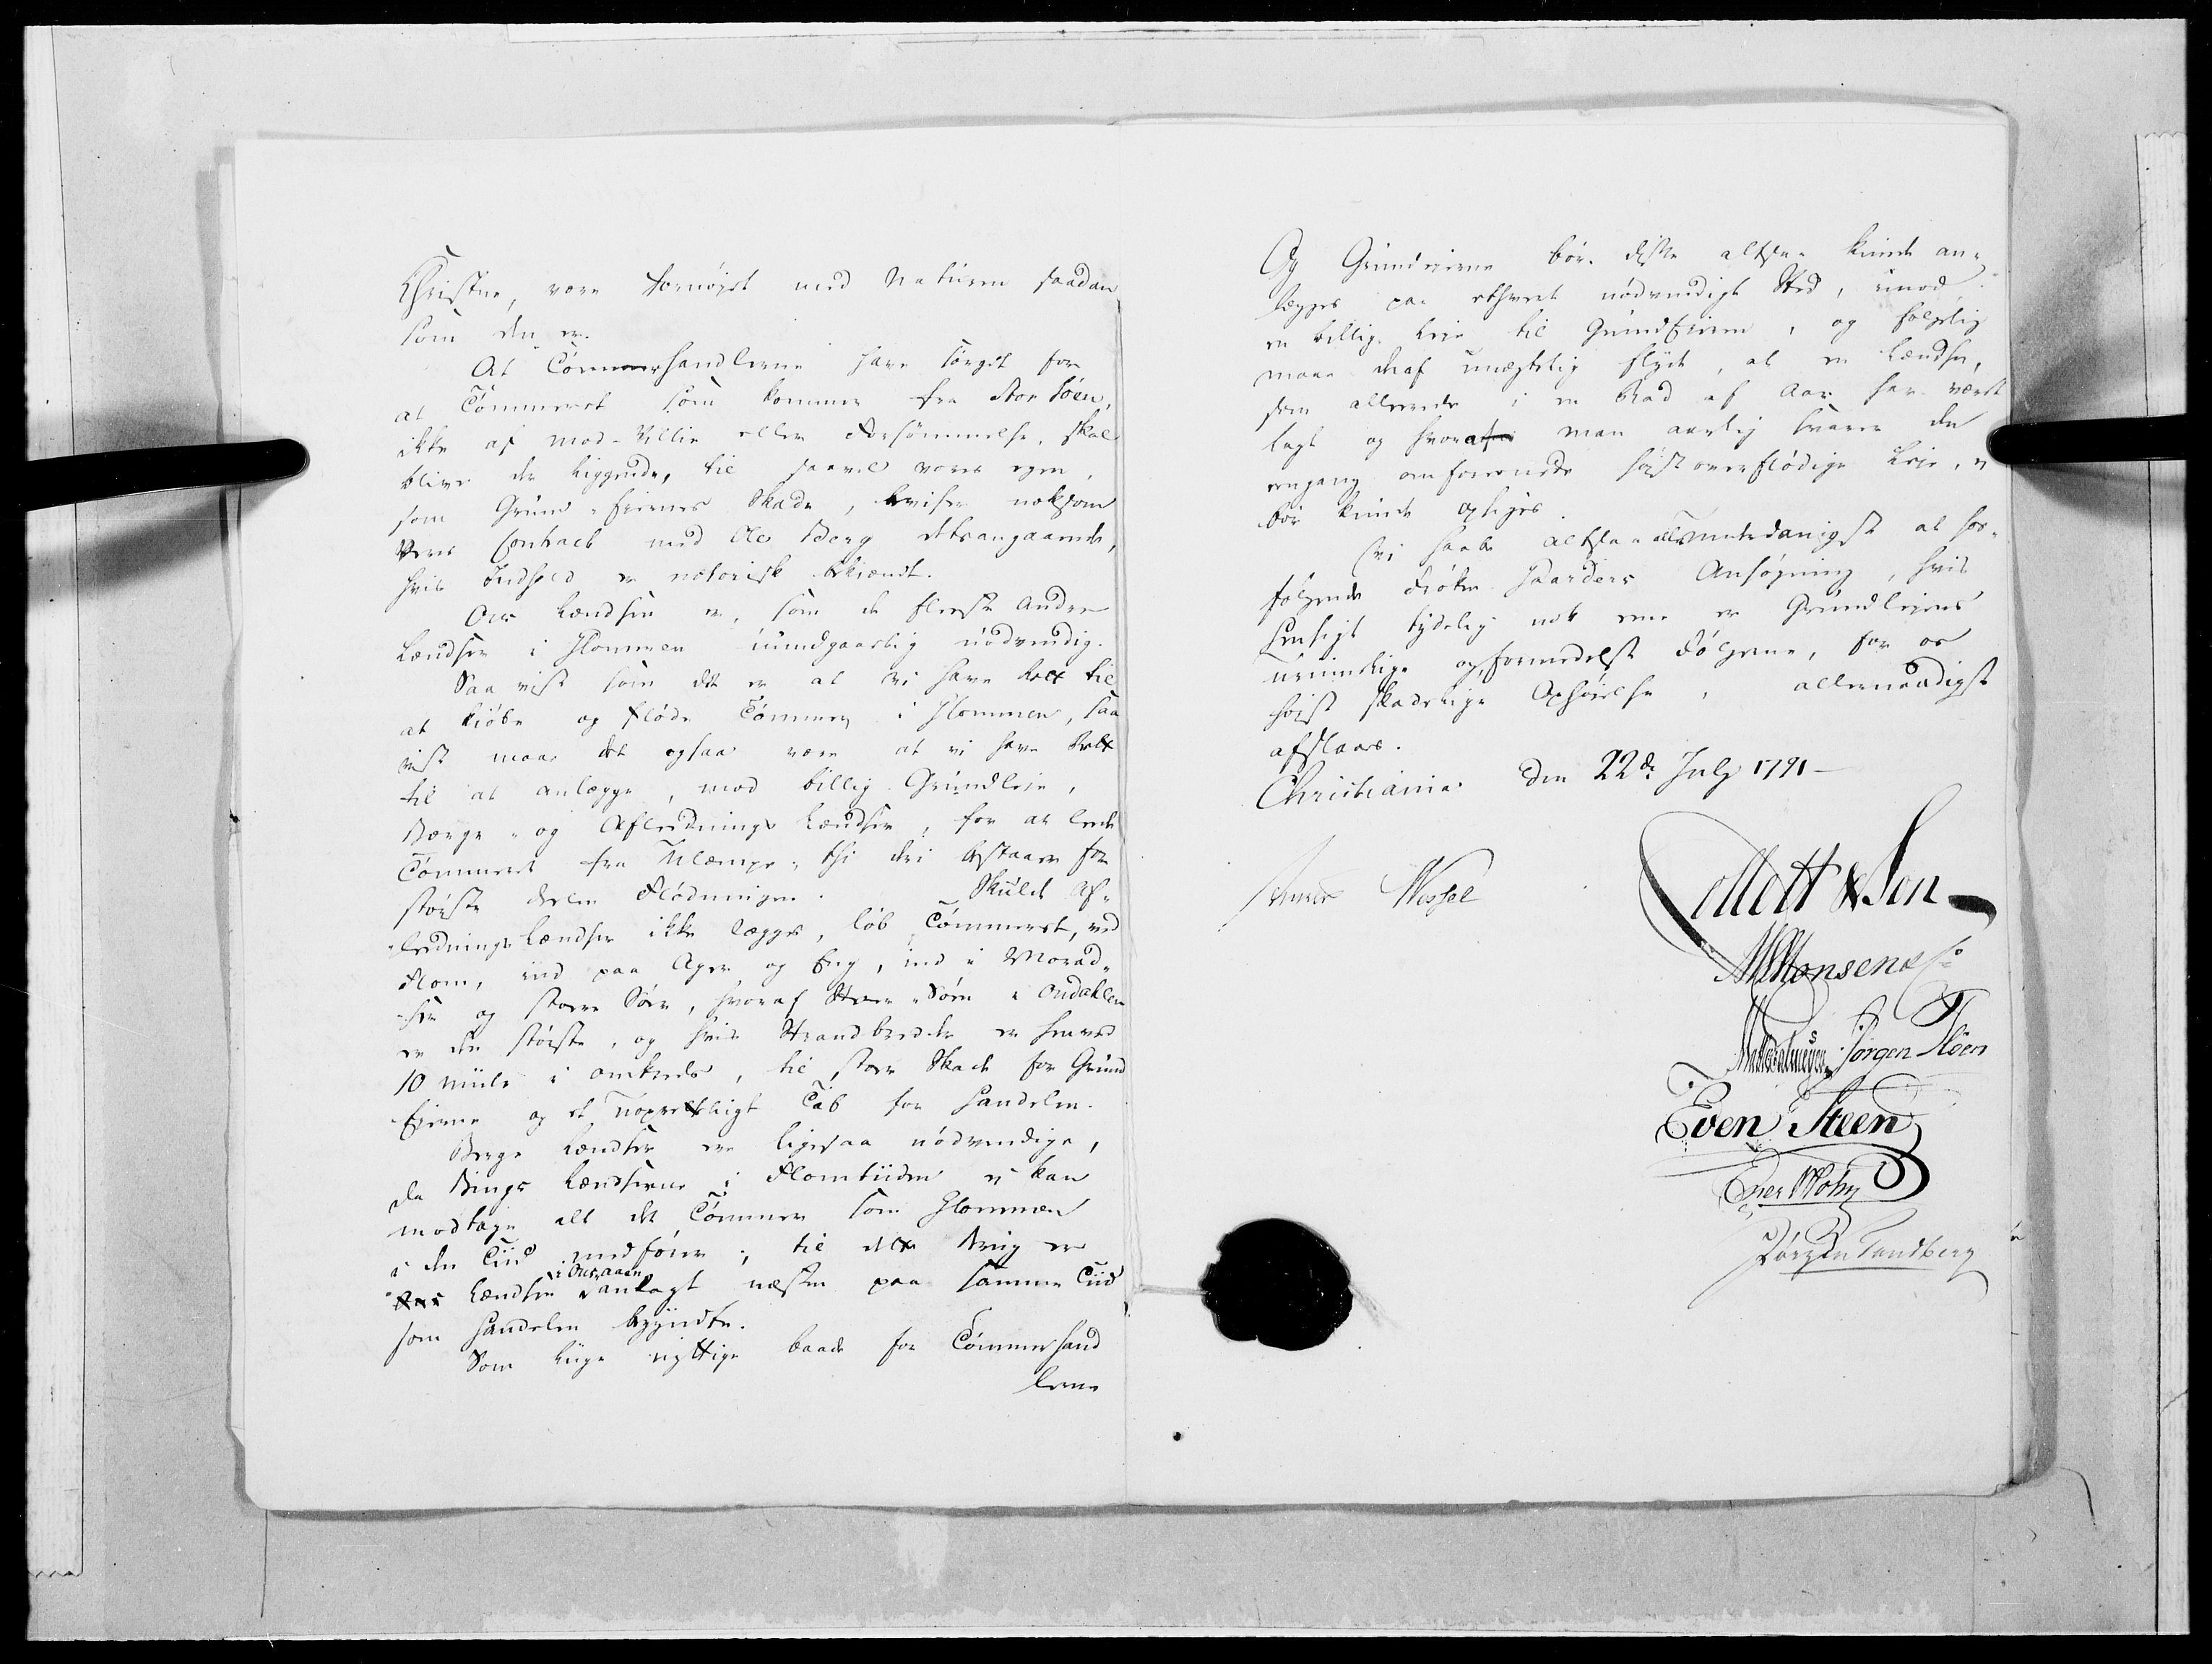 Christne, være fornøyet med Naturen saadan
som den er.
At Tømmerhandlerne have sørget for
at Tømmeret som kommer fra Stor Søen,
ikke af Mod-Villie eller Forsømmelse, skal
blive der liggende, til saavel vores egen,
som Grund-Eiernes Skade, beviser noksom
Vores Contract med Ole Berg detsangaaende,
hvis Indhold er notorisk bekiendt.
Ous Lændsen er, som de fleeste andre
Lændser i Glommen uundgaaelig nødvendig.
Saa vist som det er at vi have Rett til
at kiøbe og fløde Tømmer i Glommen, saa
vist maae det ogsaa være at vi have Rett
til at anlægge, mod billig Grundleie,
Bærge- og Afledninge Lændser, for at lede
Tømmeret fra Ulæmpe, thi deri bestaaer for
største Deelen Flødningen. Skulde Af-
lednings Lændser ikke lægges, løb Tømmeret, ved
Flom, ind paa Ager og Eng, ind i Morad-
ser og store Søer, hvoraf Stor-Søen i Oudahlen
er den største, og hvis Strandbredde er henved
10 Miile i omkreds, til stor Skade for Grund
Eierne og et uopretteligt Tab for Handelen.
Berge Lændser ere ligesaa nødvendige,
da Bings Lændserne i Flomtiiden ei kan
modtage alt det Tømmer som Glommen
i den Tiid medfører, til dette Brug er
Lændsen i Ousaaen anlagt næsten paa samme Tiid
som Handelen begyndte.
Som liige nyttige baade for Tømmerhand
lerne
Og Grundeierne bør disse altsaa kunde an-
lægges paa ethvert nødvendigt Sted, imod
en billig Leie til Grundeieren, og følgelig
maae deraf unægtelig flyde, at en Lændse,
som allerede i en Rad af Aar har været
lagt og hvoraf man aarlig svarer den
eengang omforenede høist overflødige Leie, ei
bør kunde ophæves.
Vi haabe altsaa allerunterdanigst at her-
følgende Frøken Haarders Ansøgning, hvis
Hensigt tydelig nok ene er Grundlejens
urimelige og, formedelst Følgerne, for os
høist skadelige Ophøielse, allernaadigst
afslaaes.
Christiania den 22de July 1791
Wessel
Collett & Son
Monsen & Co
Jørgen Steen
Even Steen
Jørgen Tandberg